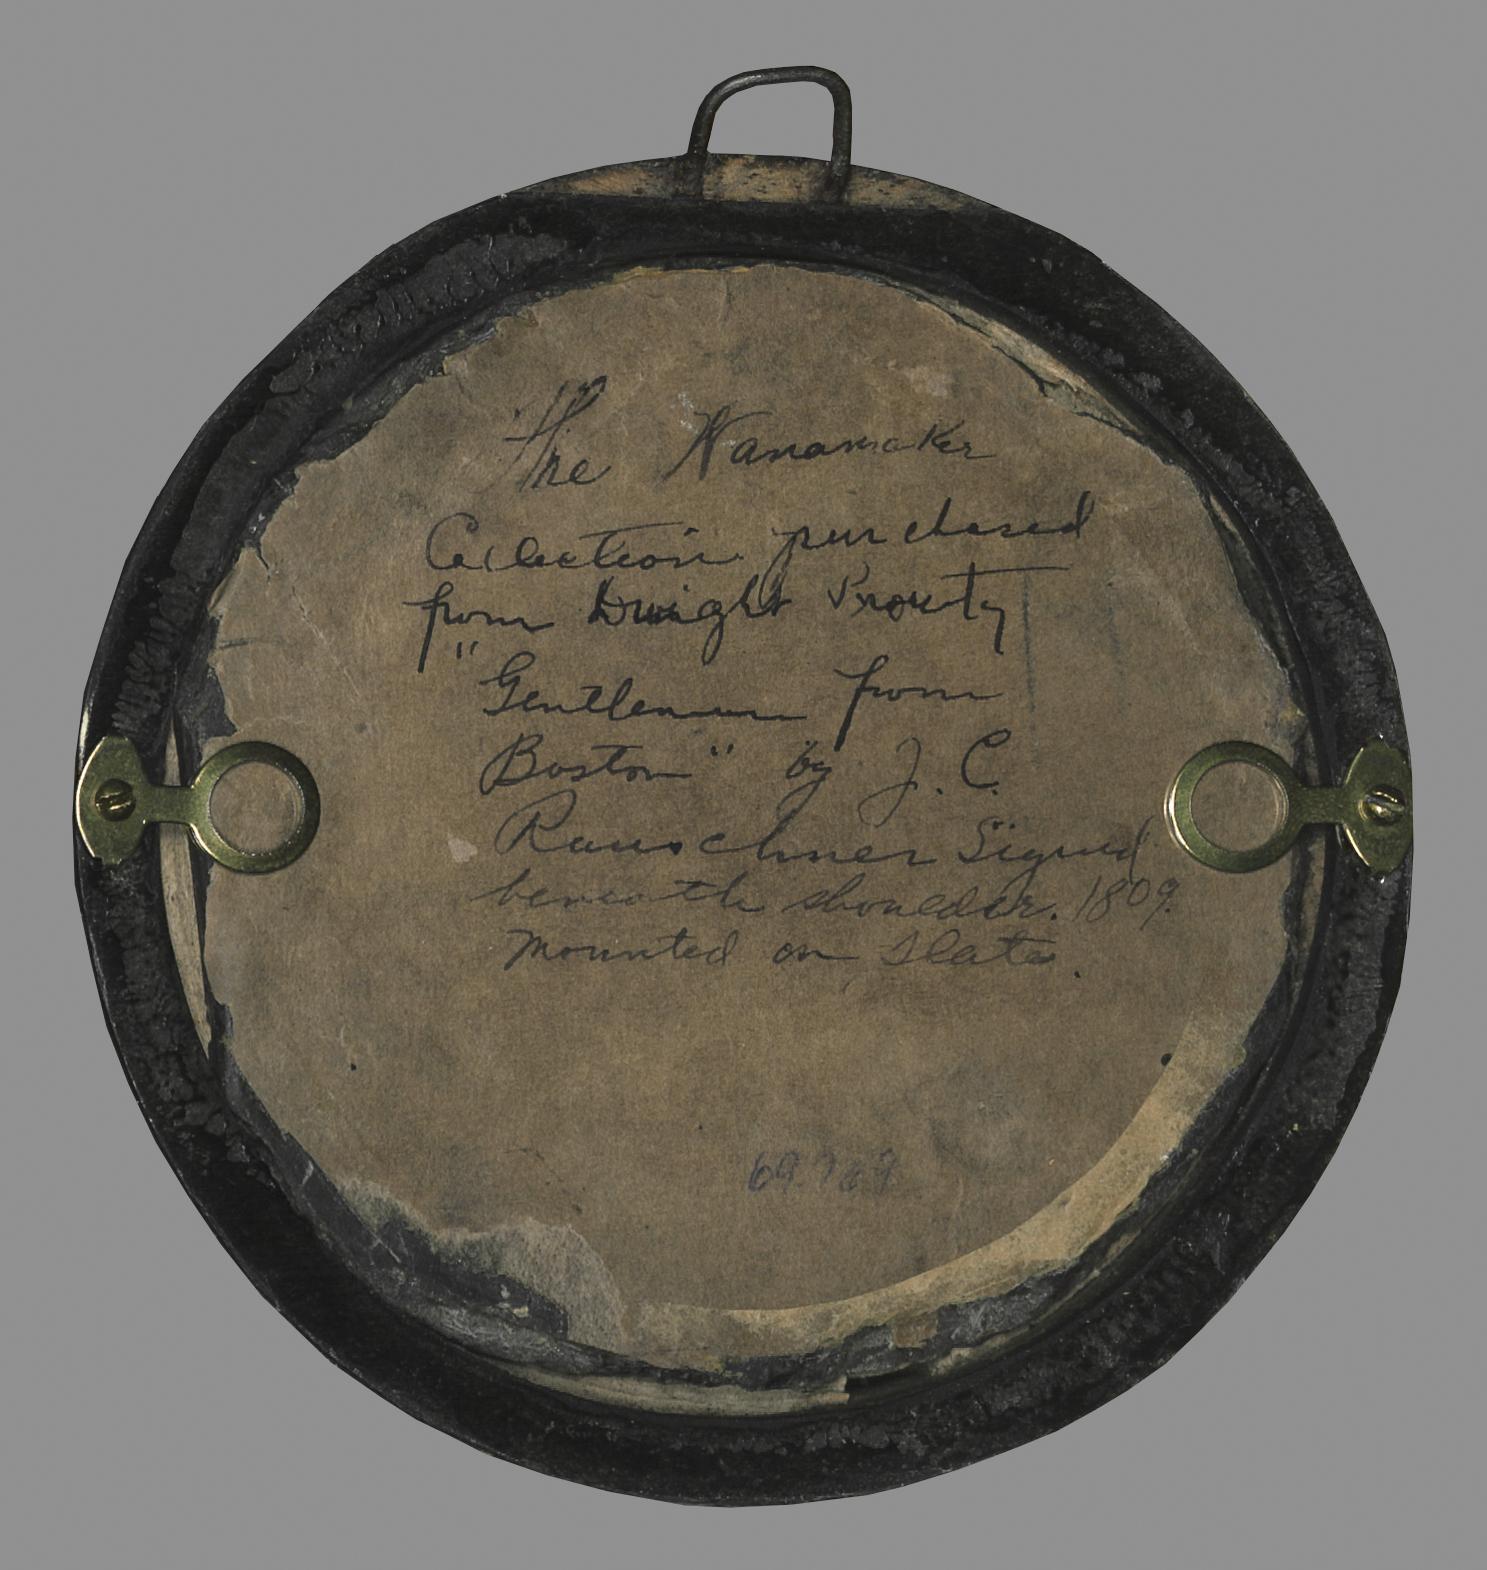 The Wanamaker
Collection purchased
from Dwight Prouty
"Gentleman from
Boston" by J. C.
Rauschner Signed
beneath shoulder. 1809.
Mounted on slate.
69.769